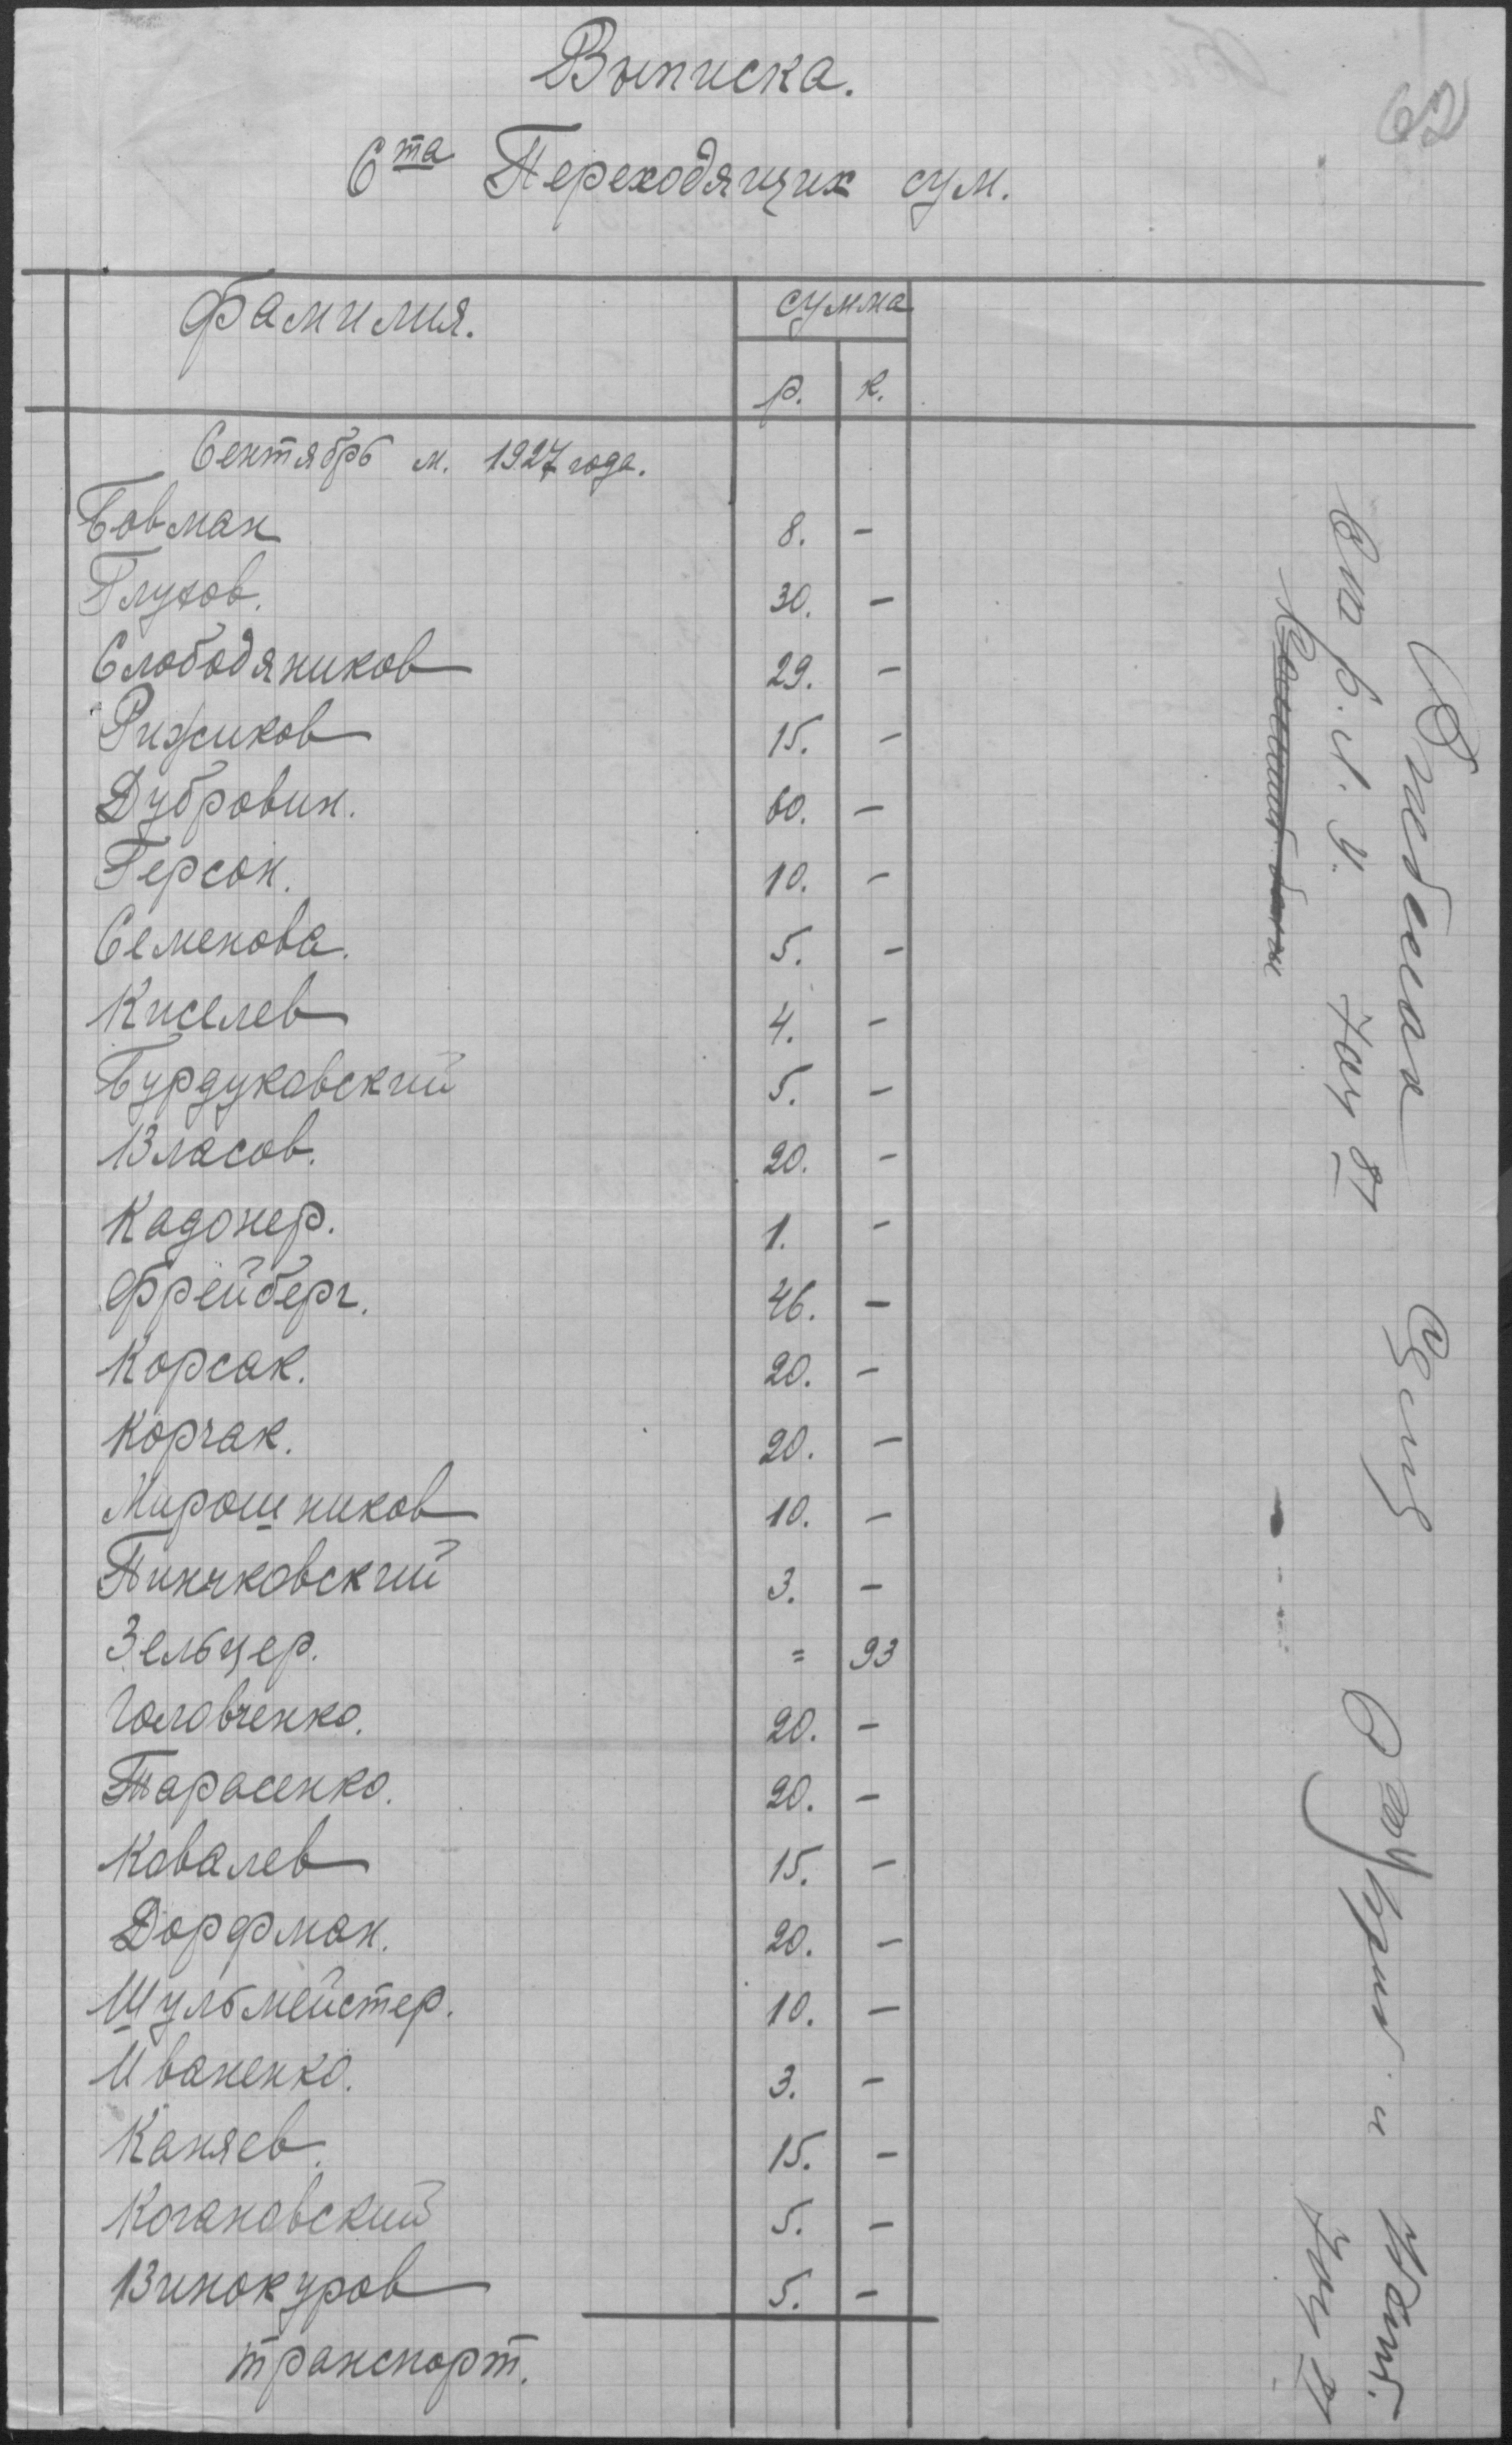 62
Выписка.
Ста Переходящих сум.
Фамилия. сумма
р. к.
Сентябрь м. 1927 года.
Бовман 8. -
Глухов. 30. -
Слободяников 29. -
Рижиков 15. -
Дубровин. 60. -
Герсон. 10. -
Семенова. 5. -
Киселев 4. -
Бурдуковский 5. -
Власов. 20. -
Кадонер. 1. -
Фрейберг. 46. -
Корсак. 20. -
Корчак. 20. -
Мирошников 10. -
Пинчковский 3. -
Зельцер. = 93
Головченко. 20. -
Тарасенко. 20. -
Ковалев 15. -
Дорфман. 20. -
Шульмейстер. 10. -
Иваненко. 3. -
Каняев. 15. -
Когановский 5. -
Винокуров 5. -
транспорт.